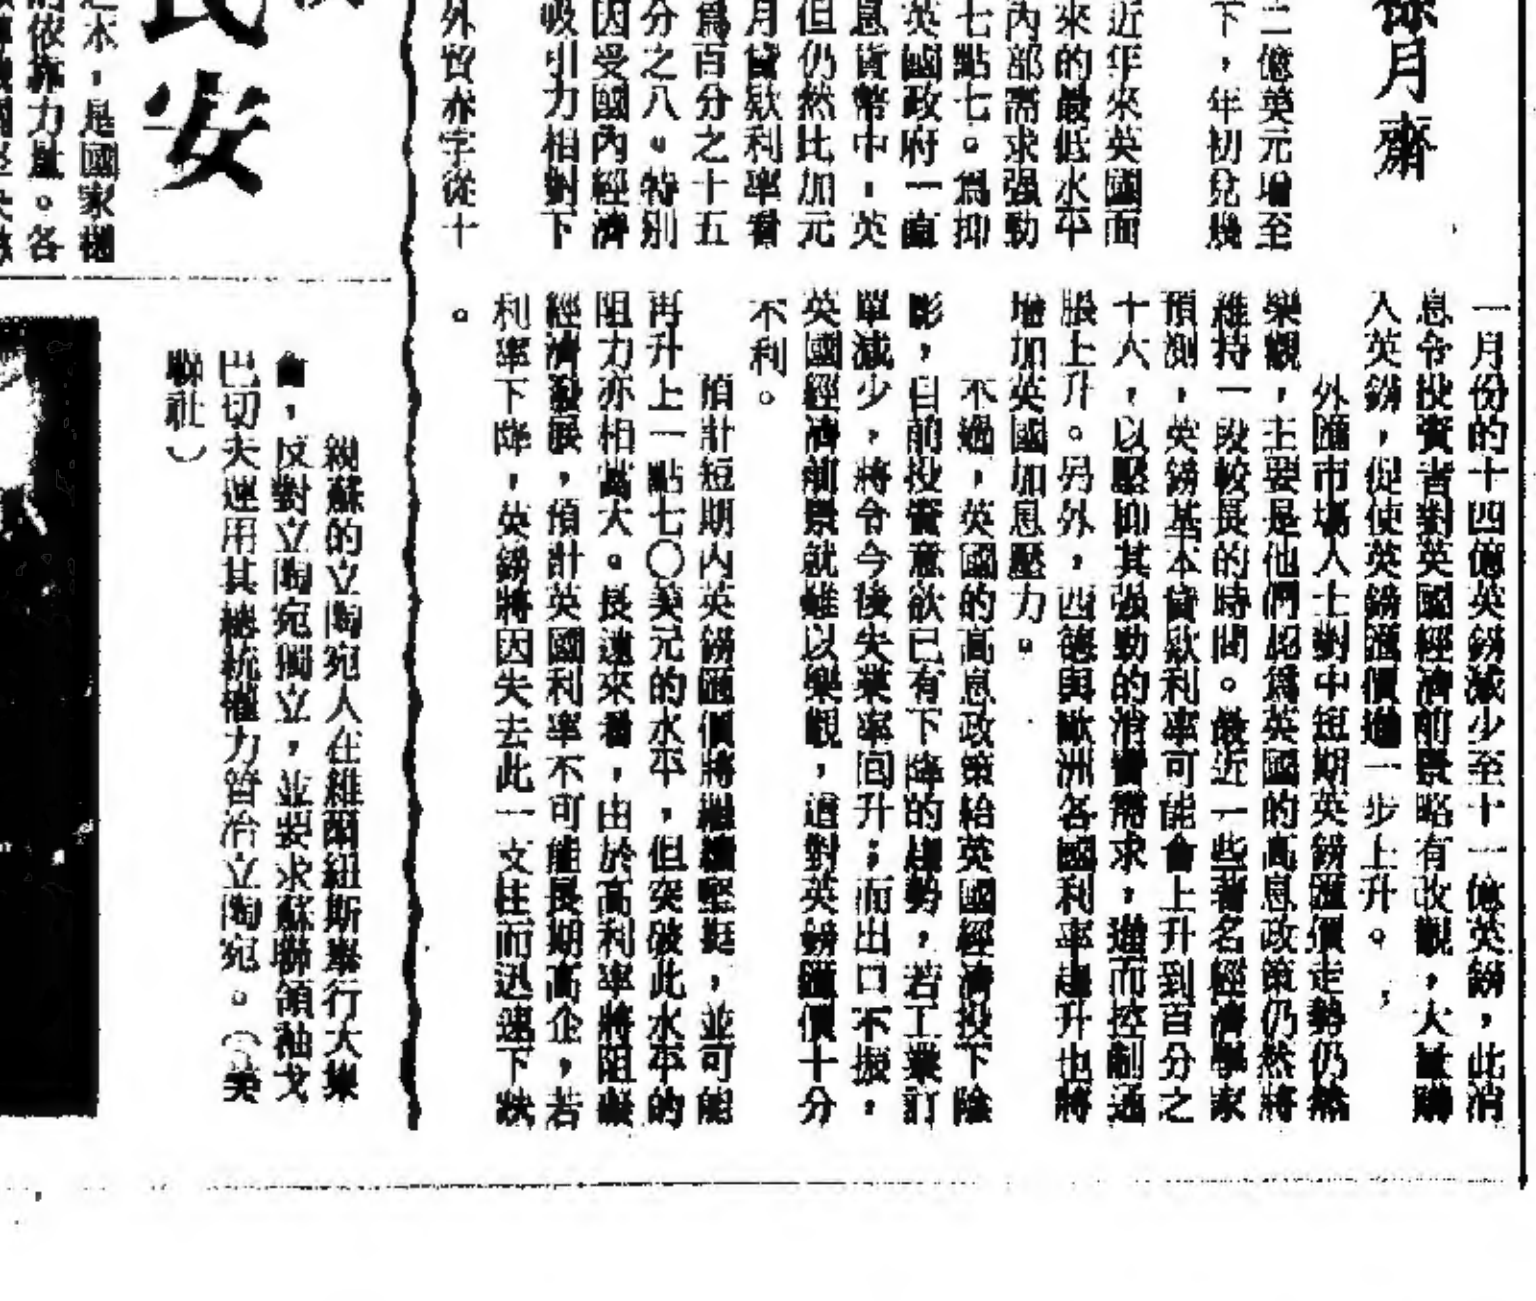 月齋
二億英元增至
下，年初兌幾
近年來英國面
來的最低水平
內部需求强勁
七點七。爲抑
英國政府一直
息貨幣中，英
但仍然比加元
月貸款利率看
爲百分之十五
分之八。特別
因受國內經濟
吸引力相對下
外貿赤字從十
一月份的十四億英鎊減少至十一億英鎊，此消
息令投資者對英國經濟前景略有改觀，大量購
入英鎊，促使英鎊匯價進一步上升。
外匯市場人士對中短期英鎊匯價走勢仍然
樂觀，主要是他們認爲英國的高息政策仍然將
維持一段較長的時間。最近一些著名經濟學家
預測，英鎊基本貸款利率可能會上升到百分之
十六，以壓抑其强勁的消費需求，進而控制通
脹上升。另外，西德與歐洲各國利率趨升也將
增加英國加息壓力。
不過，英國的高息政策給英國經濟投下陰
影，目前投資意欲已有下降的趨勢，若工業訂
單減少，將令今後失業率回升；而出口不振，
英國經濟前景就難以樂觀，這對英鎊匯價十分
不利。
預計短期內英鎊匯價將繼續堅挺，並可能
再升上一點七〇美元的水平，但突破此水平的
阻力亦相當大。長遠來看，由於高利率將阻礙
經濟發展，預計英國利率不可能長期高企，若
利率下降，英鎊將因失去此一支柱而迅速下跌
。
民安
本，是國家
的依靠力量。各
親蘇的立陶宛人在維爾紐斯舉行大集
會，反對立陶宛獨立，並要求蘇聯領袖戈
巴切夫運用其總統權力管治立陶宛。（美
聯社）